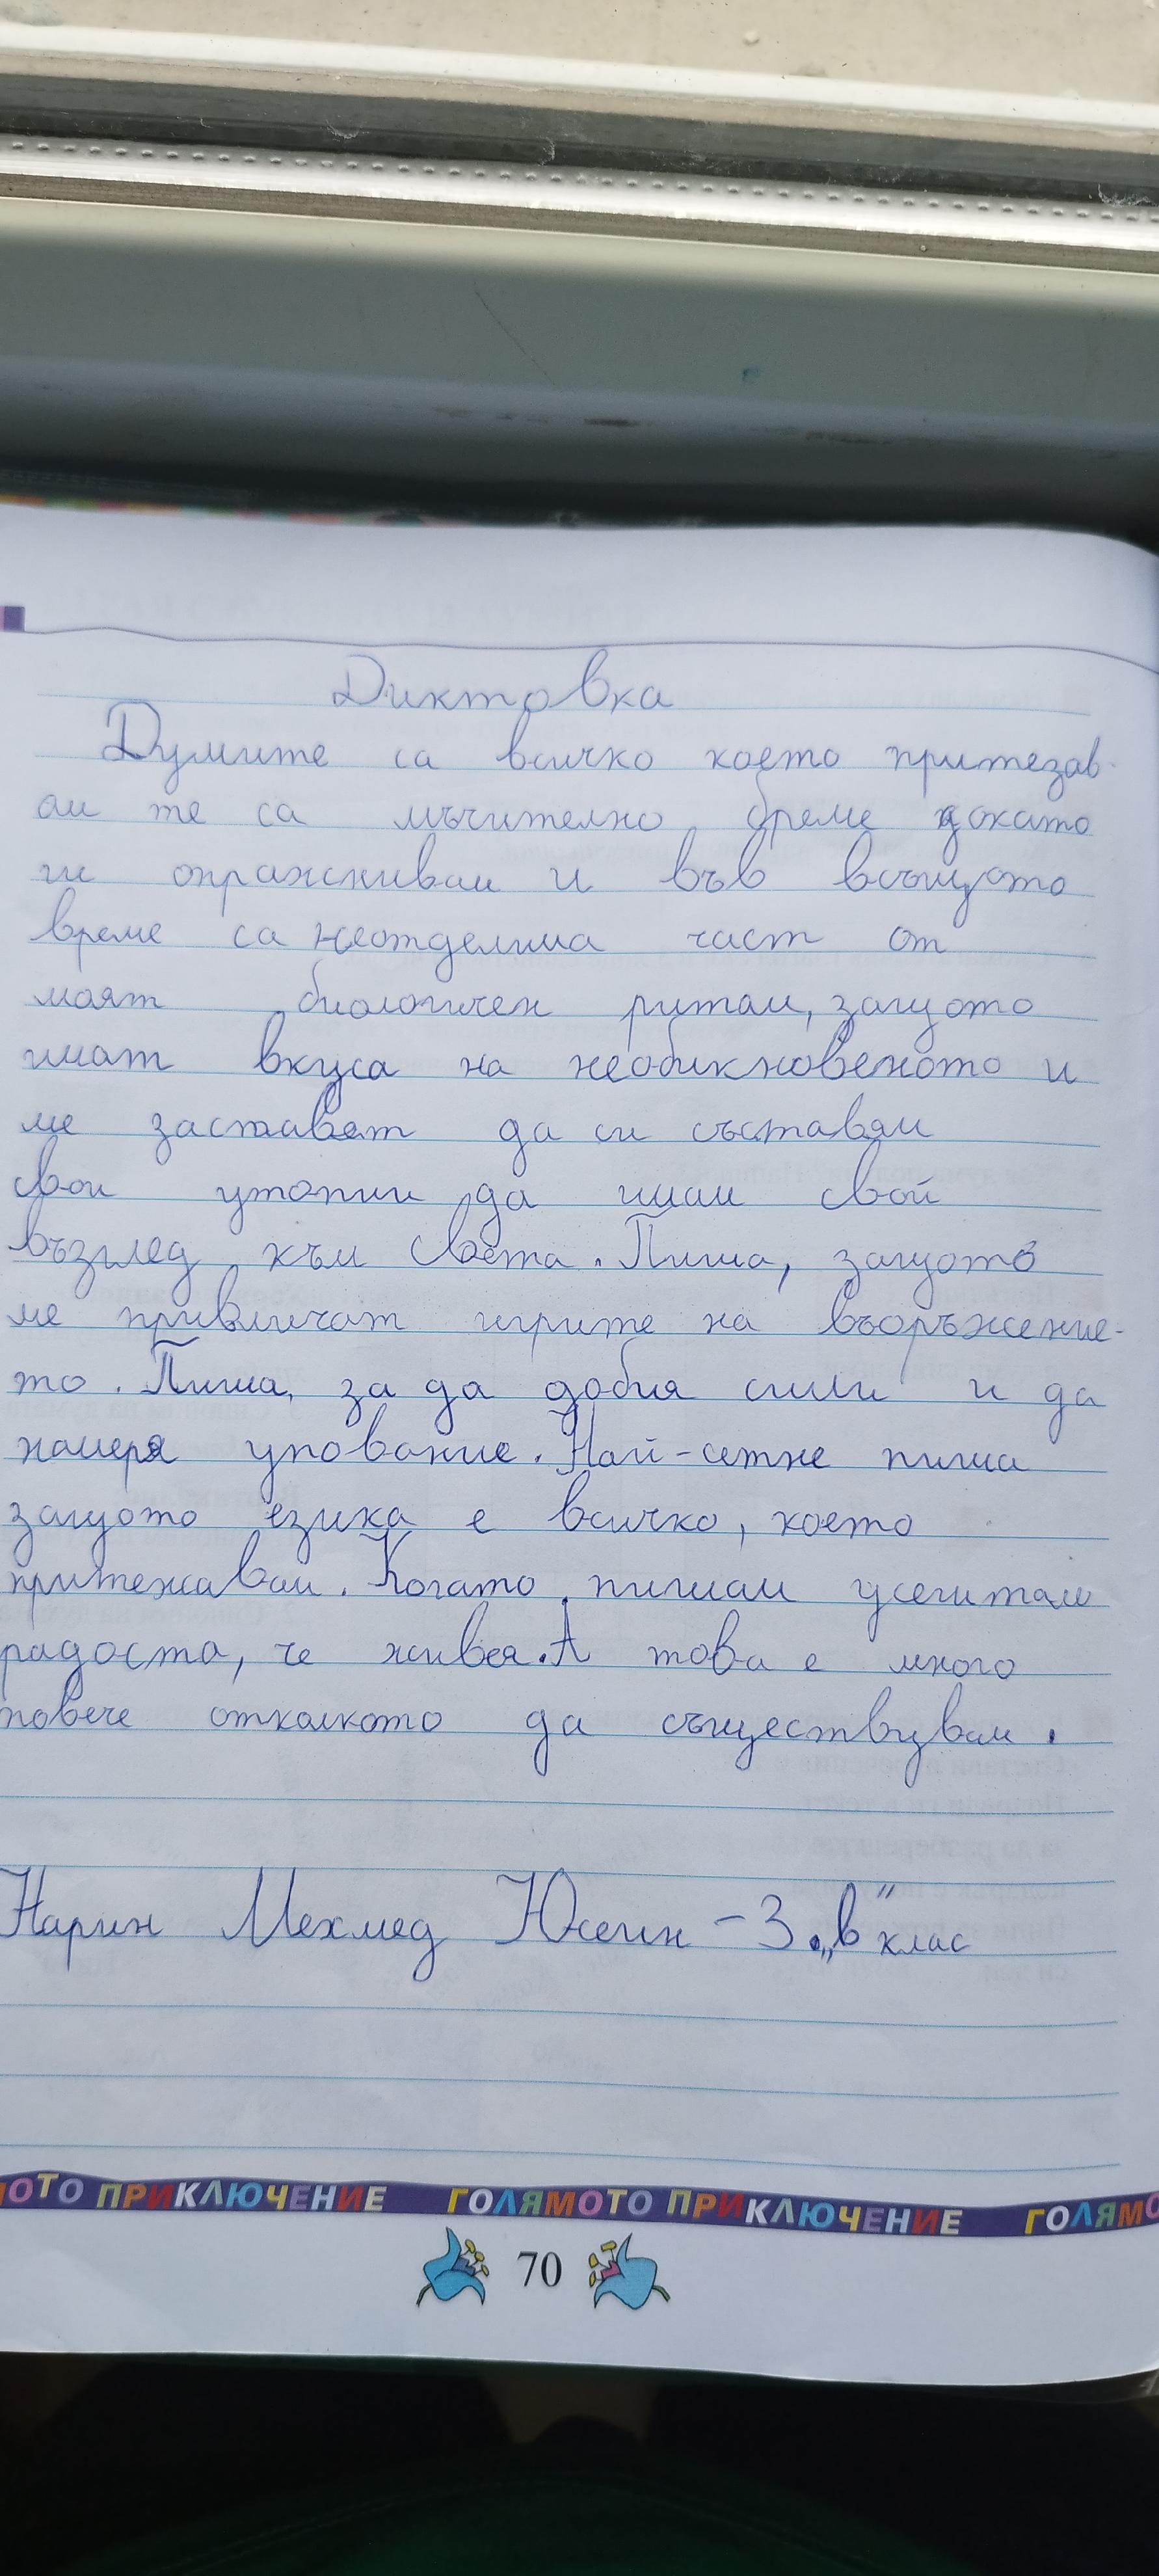 Диктовка
Думите са всичко което притезав-
ам те са мъчително бреме докато
ги опражнивам и във всъщото
време са неотделима част от
маят биологичен ритам, защото
имат вкуса на необикновеното и
ме заставят да си съставям
свои утопии да имам свой
възглед към света. Пиша, защото
ме привличат игрите на въоръжение-
то. Пиша, за да добия сили и да
намеря упование. Най-сетне пиша
защото езика е всичко, което
притежавам. Когато пишам усещтам
радоста, че живея. А това е много
повече отколкото да съществувам.
Нарин Мехмед Юсеин - 3 „в" клас
МОТО ПРИКЛЮЧЕНИЕ ГОЛЯМОТО ПРИКЛЮЧЕНИЕ ГОЛЯМО
70